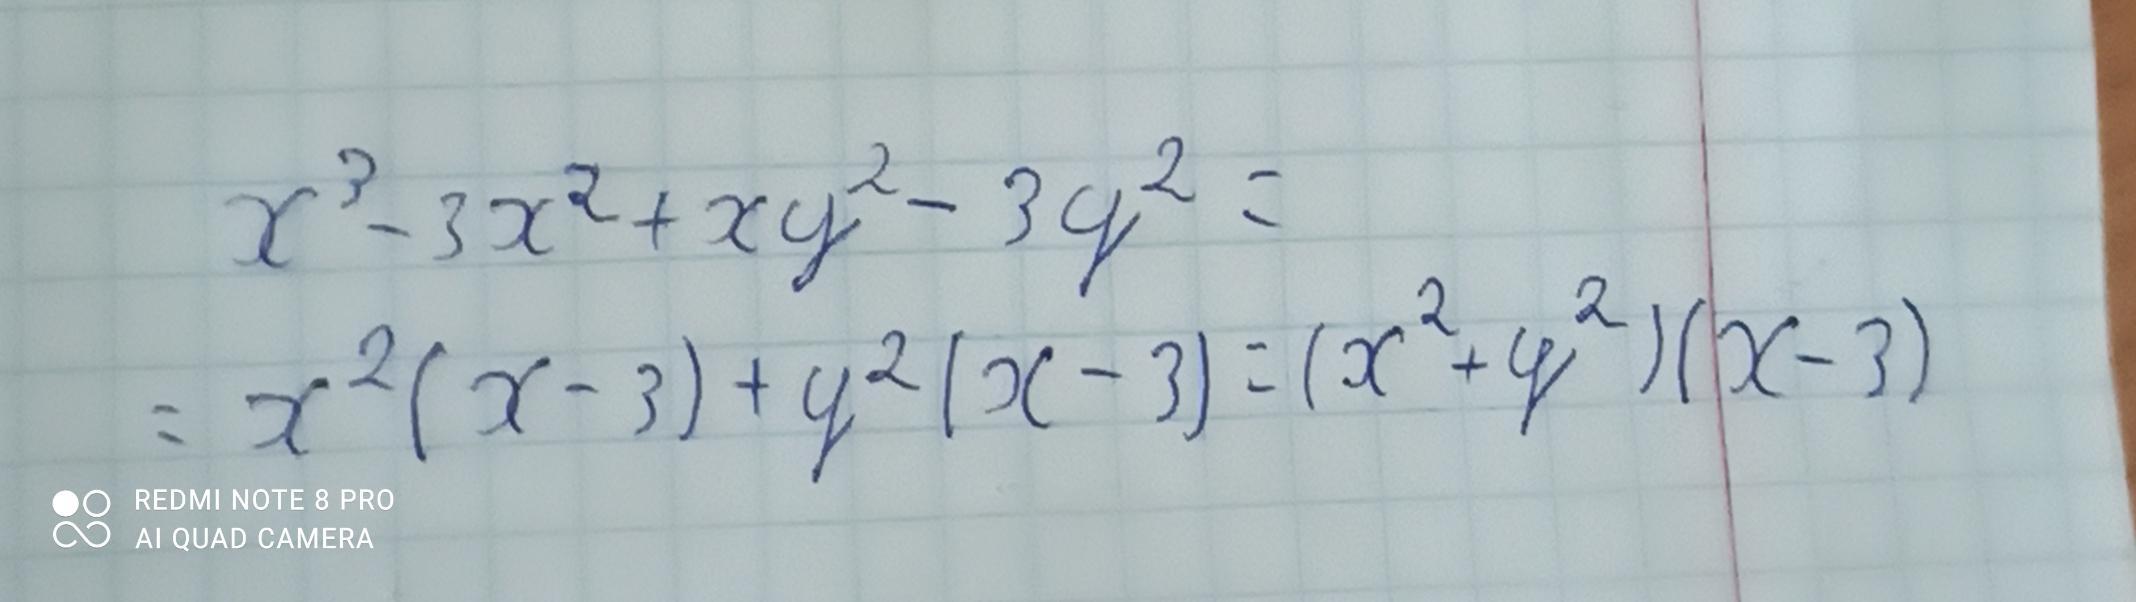 x³ - 3x² + xy² - 3y² =
= x²(x - 3) + y²(x - 3) = (x² + y²)(x - 3)
REDMI NOTE 8 PRO
AI QUAD CAMERA